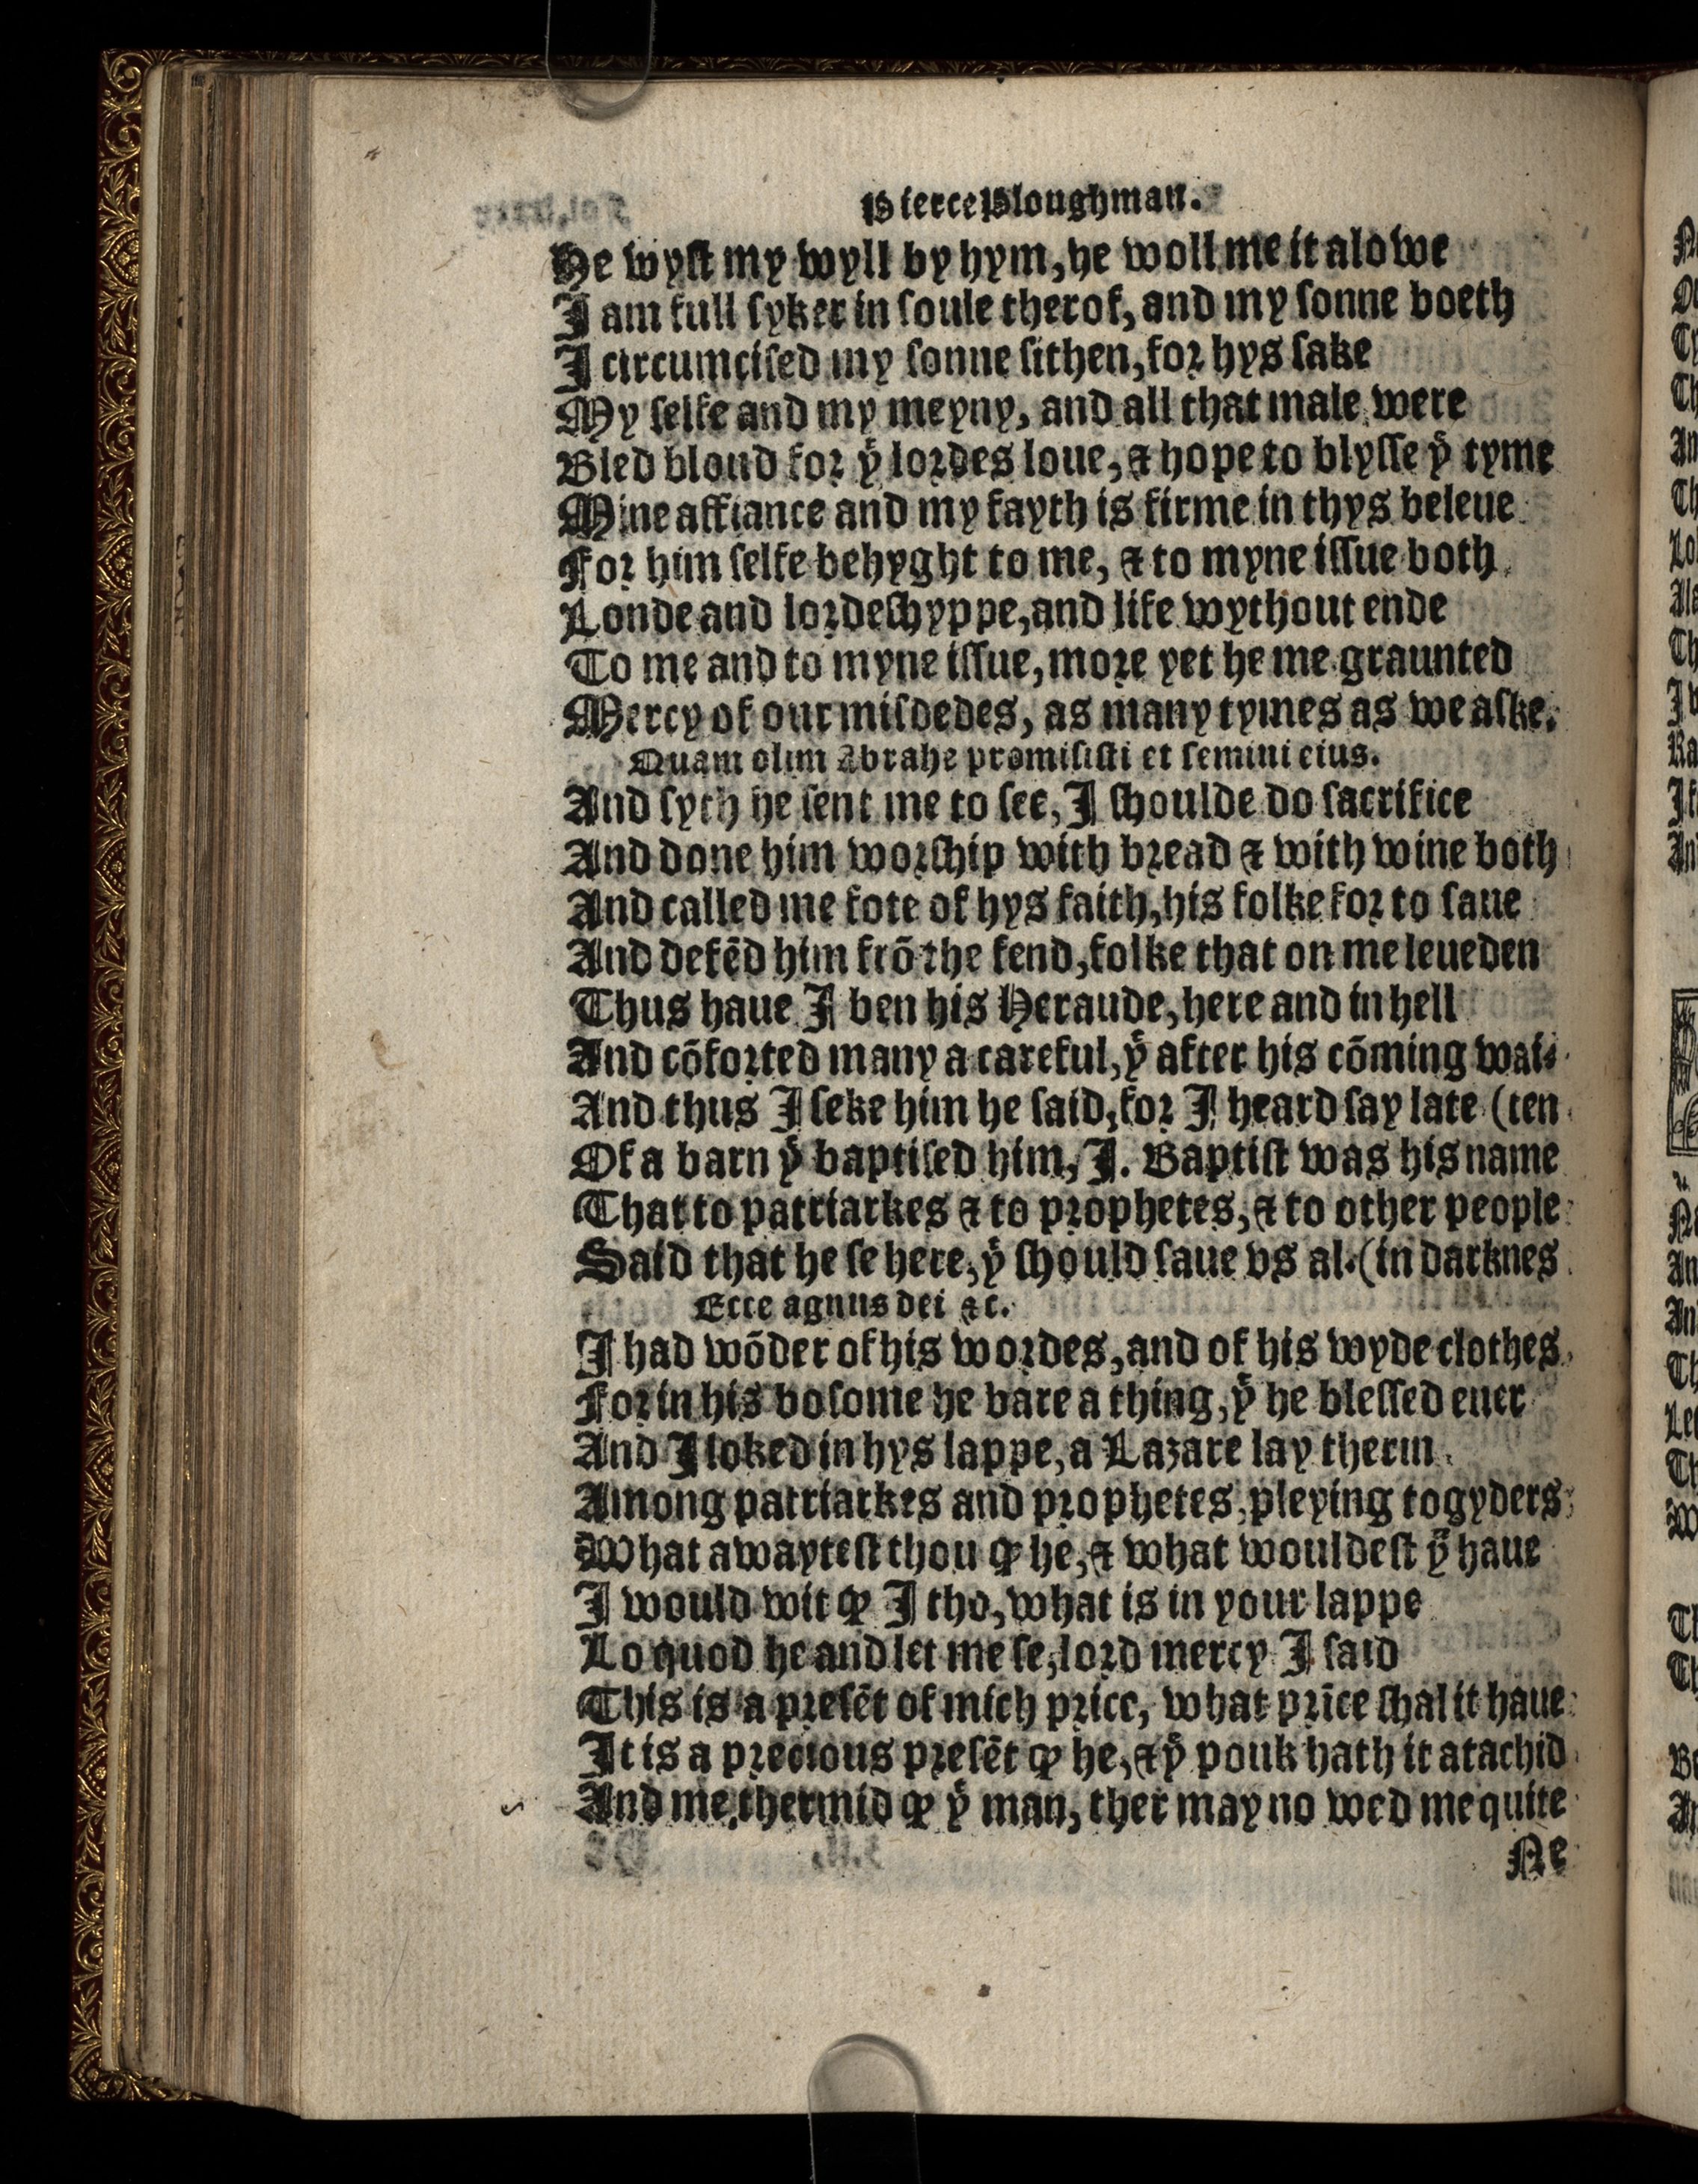 Pierce Ploughman.
He wyſt my wyll by hym, he woll me it alowe
I am full ſyker in ſoule therof, and my ſonne boeth
I circumciſed my ſonne ſithen, for hys ſake
My ſelfe and my meyny, and all that male were
Bled bloud for yͤ lordes loue, & hope to blyſſe yͤ tyme
Mine affiance and my fayth is firme in thys beleue
For him ſelfe behyght to me, & to myne iſſue both
Londe and lordeſhyppe, and life wythout ende
To me and to myne iſſue, more yet he me graunted
Mercy of our miſdedes, as many tymes as we aſke.
Quam olim Abrahe promiſiſti et ſemini eius.
And ſyth he ſent me to ſee, I ſhoulde do ſacrifice
And done him worſhip with bread & with wine both
And called me fote of hys faith, his folke for to ſaue
And defẽd him frõ the fend, folke that on me leueden
Thus haue I ben his Heraude, here and in hell
And cõforted many a careful, yͭ after his cõming wai-
And thus I ſeke him he ſaid, for I heard ſay late (ten
Of a barn yͭ baptiſed him, I. Baptiſt was his name
That to patriarkes & to prophetes, & to other people
Said that he ſe here, yͭ ſhould ſaue vs al. (in darknes
Ecce agnus dei &c.
I had wõder of his wordes, and of his wyde clothes
For in his boſome he bare a thing, yͭ he bleſſed euer
And I loked in hys lappe, a Lazare lay therin
Among patriarkes and prophetes, pleying togyders
What awayteſt thou ꝙ he, & what wouldeſt yͧ haue
I would wit ꝙ I tho, what is in your lappe
Lo quod he and let me ſe, lord mercy I ſaid
This is a preſẽt of mich price, what prīce ſhal it haue
It is a precious preſẽt ꝙ he, & yͤ pouk hath it atachid
And me thermid ꝙ yͤ man, ther may no wed me quite
Ne